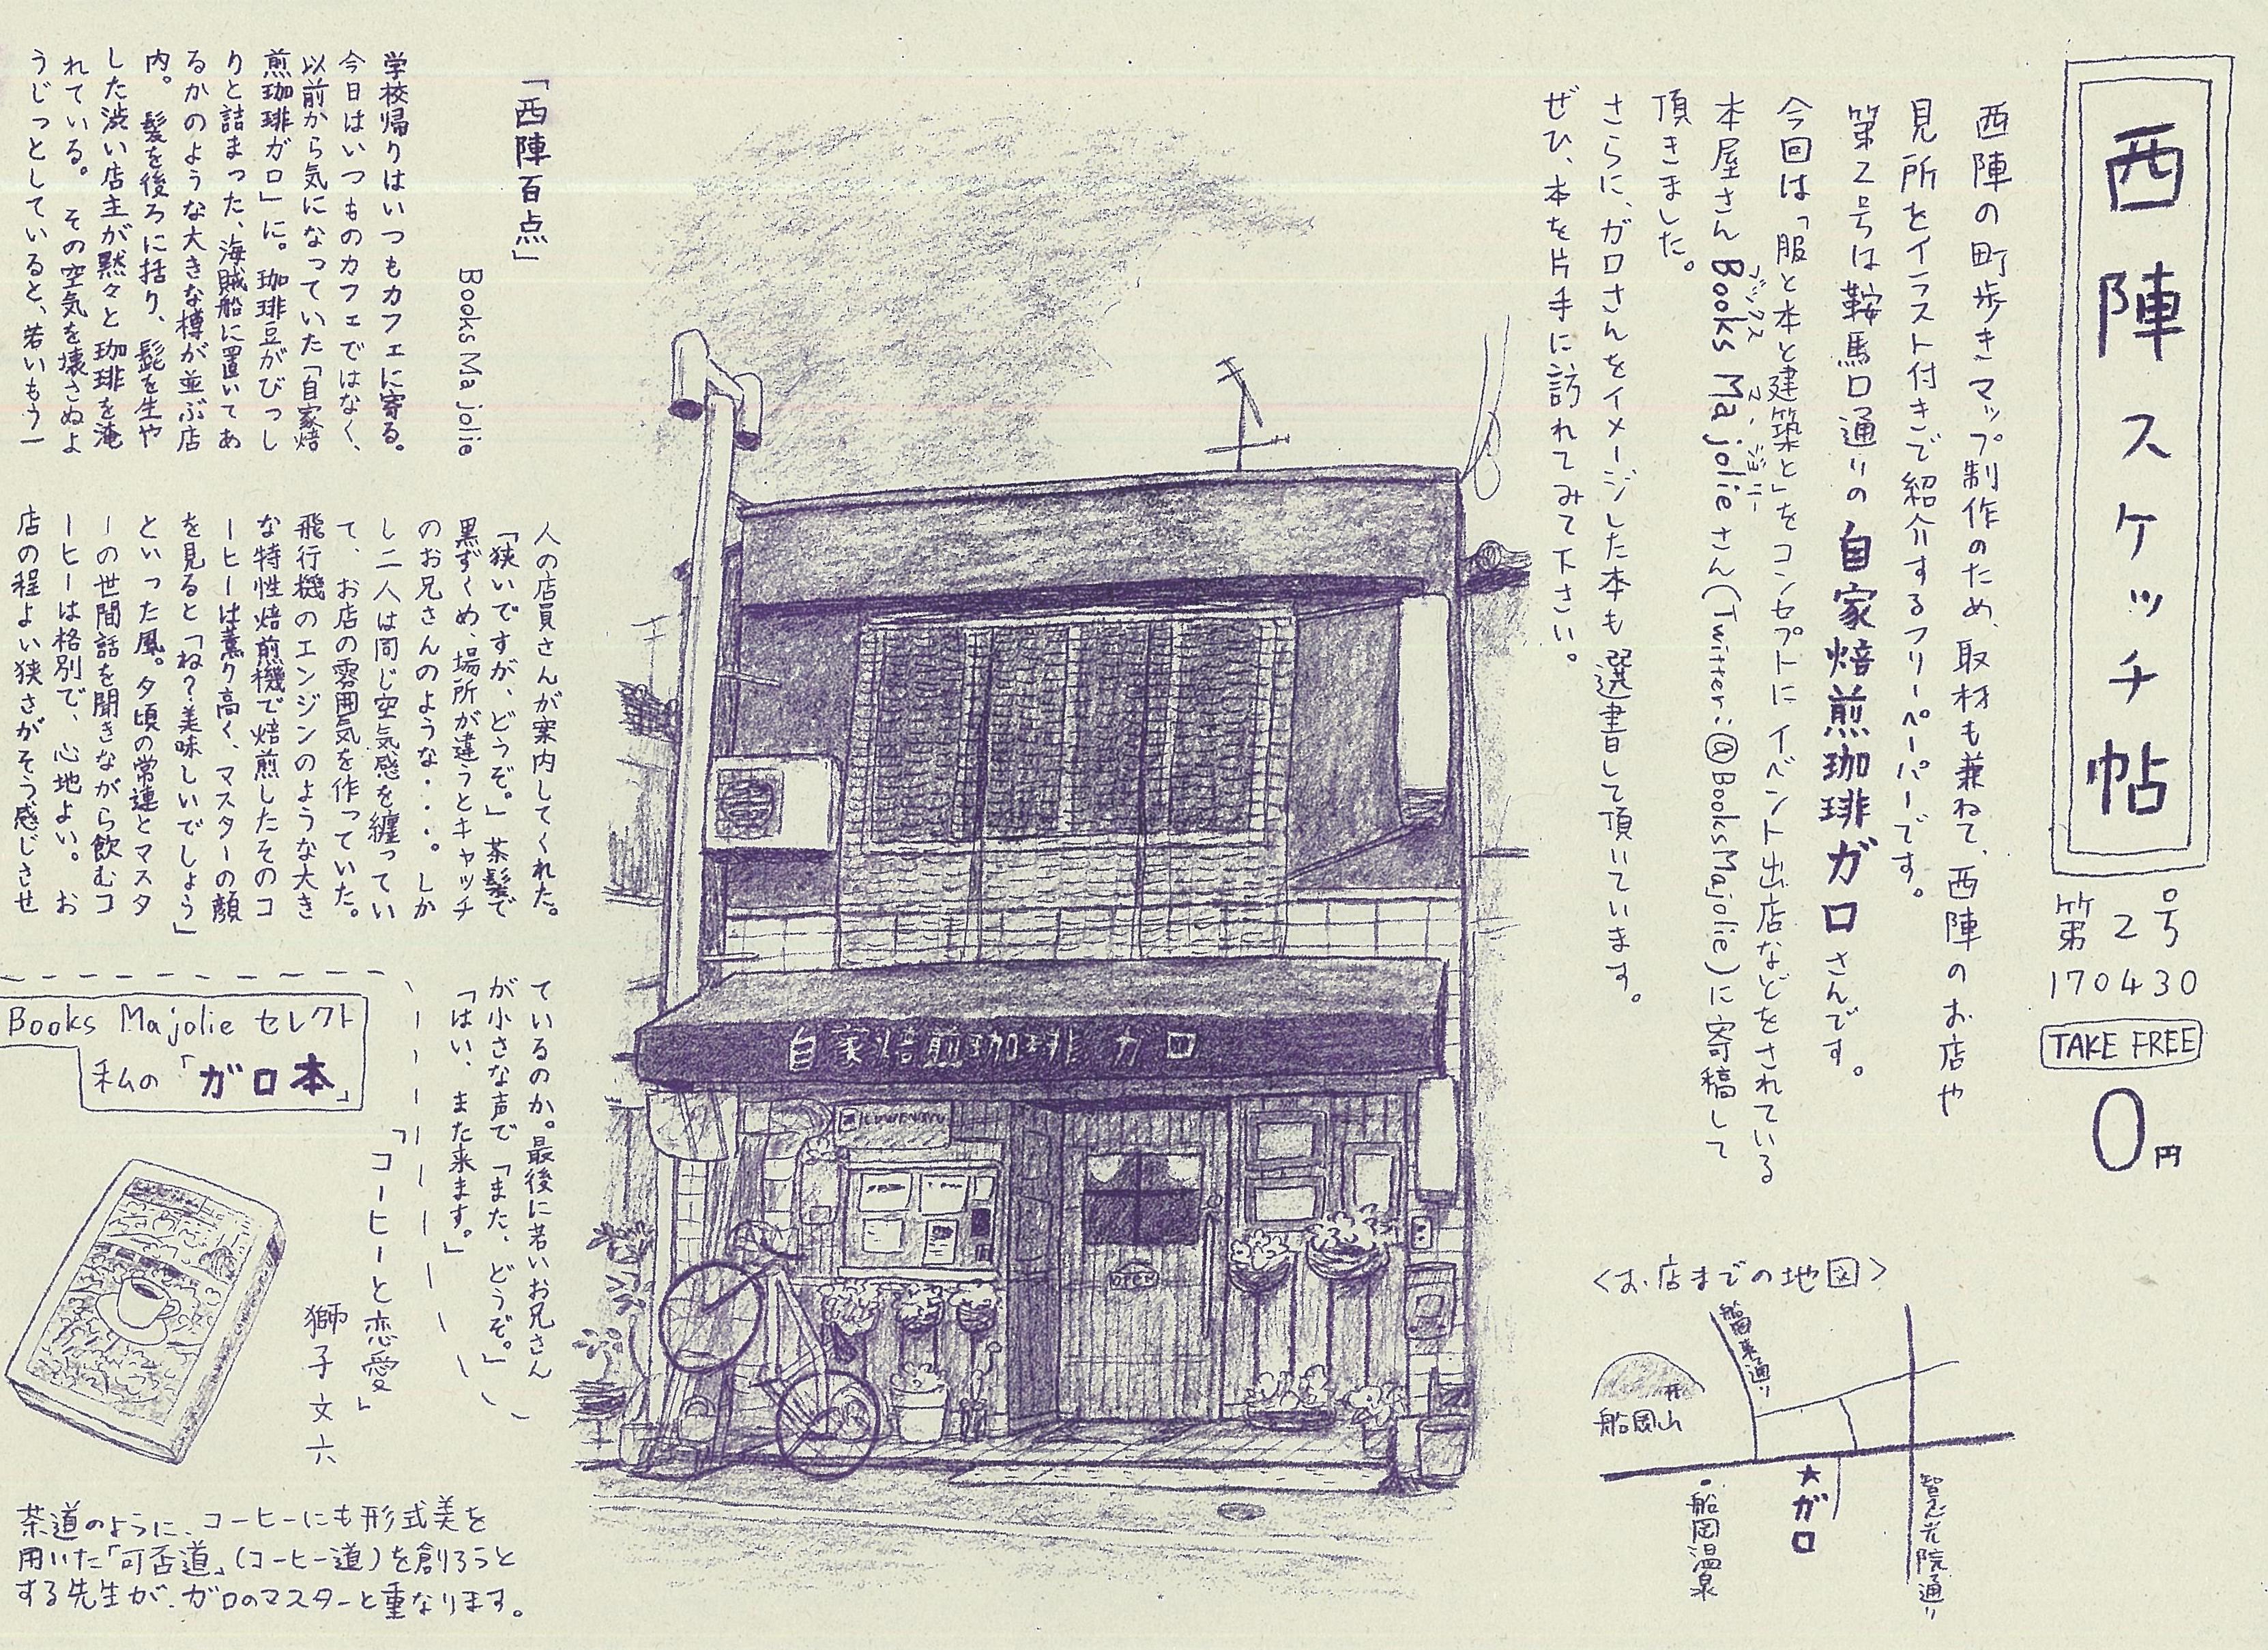 西陣スケッチ帖
第2号
170430
TAKE FREE
0円
西陣の町歩きマップ制作のため、取材も兼ねて、西陣のお店や
見所をイラスト付きで紹介するフリーペーパーです。
第2号は鞍馬口通りの自家焙煎珈琲ガロさんです。
今回は「服と本と建築と」をコンセプトにイベント出店などをされている
本屋さんBooks Majolieさん(Twitter:@BooksMajolie)に寄稿して
ブックス マ・ジョリー
頂きました。
さらに、ガロさんをイメージした本も選書して頂いています。
ぜひ、本を片手に訪れてみて下さい。
<お店までの地図>
船岡東通り
船岡山
船岡温泉
★ガロ
智恵光院通り
自家焙煎珈琲 ガロ
OPEN
「西陣百点」
Books Majolie
学校帰りはいつもカフェに寄る。
今日はいつものカフェではなく、
以前から気になっていた「自家焙
煎珈琲ガロ」に。珈琲豆がびっし
りと詰まった、海賊船に置いてあ
るかのような大きな樽が並ぶ店
内。髪を後ろに括り、髭を生や
した渋い店主が黙々と珈琲を淹
れている。その空気を壊さぬよ
うじっとしていると、若いもう一
人の店員さんが案内してくれた。
「狭いですが、どうぞ。」茶髪で
黒ずくめ、場所が違うとキャッチ
のお兄さんのような・・・。しか
し二人は同じ空気感を纏ってい
て、お店の雰囲気を作っていた。
飛行機のエンジンのような大き
な特性焙煎機で焙煎したそのコ
ーヒーは薫り高く、マスターの顔
を見ると「ね?美味しいでしょう」
といった風。夕頃の常連とマスタ
ーの世間話を聞きながら飲むコ
ーヒーは格別で、心地よい。お
店の程よい狭さがそう感じさせ
ているのか。最後に若いお兄さん
が小さな声で「また、どうぞ。」
「はい、また来ます。」
Books Majolie セレクト
私の「ガロ本」
「コーヒーと恋愛」
獅子文六
茶道のように、コーヒーにも形式美を
用いた「可否道」(コーヒー道)を創ろうと
する先生が、ガロのマスターと重なります。